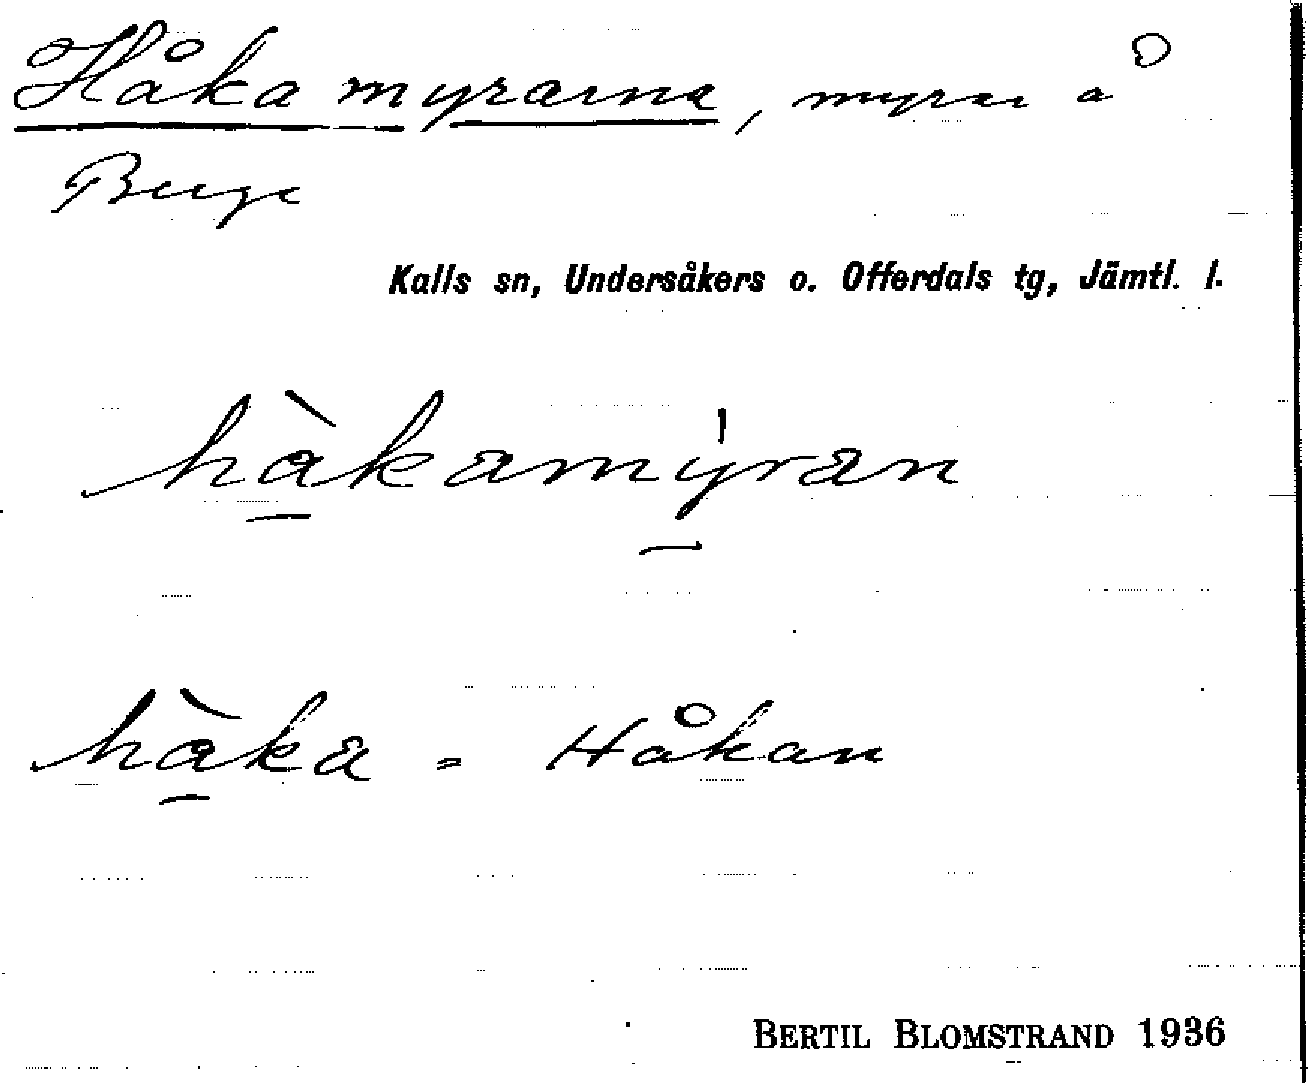 Håkamyrarna, myrar å
Berge
Kalls sn, Undersåkers o. Offerdals tg, Jämtl. l.
hàkamýran
hàka = Håkan
BERTIL BLOMSTRAND 1936